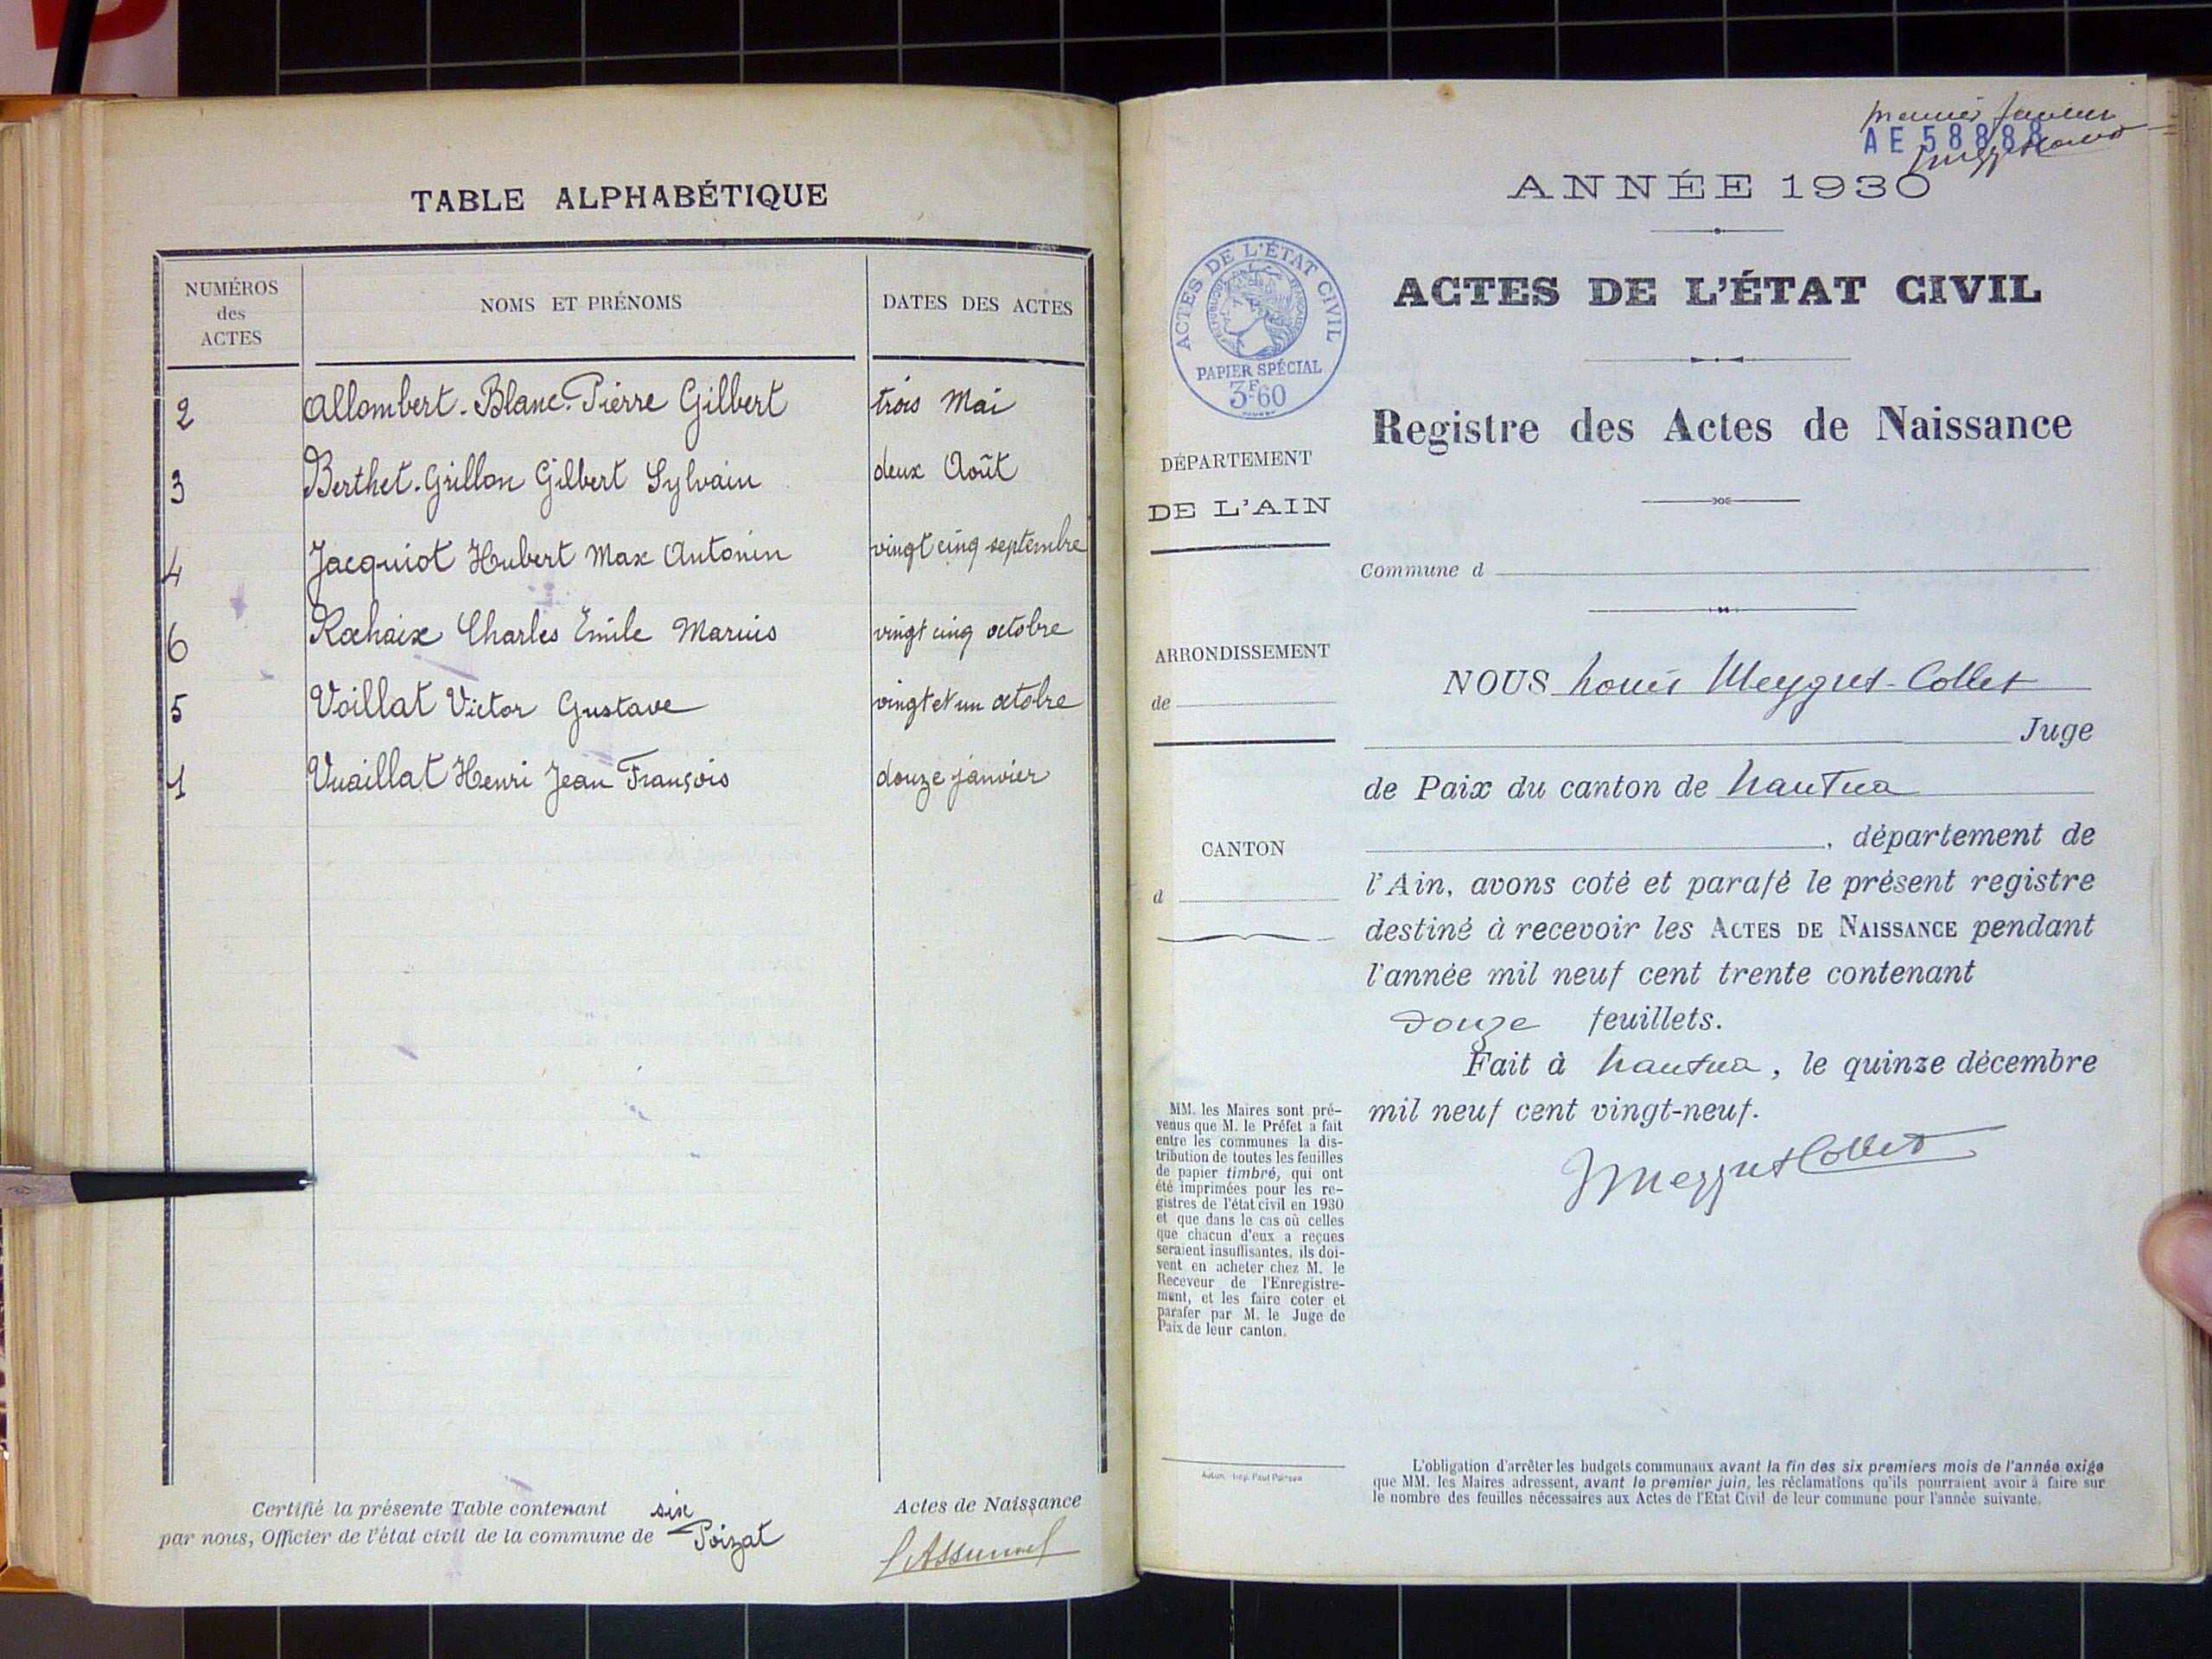 TABLE ALPHABÉTIQUE
NUMÉROS
des
ACTES
NOMS ET PRÉNOMS
DATES DES ACTES
2 Allombert-Blanc Pierre Gilbert trois Mai
3 Berthet-Grillon Gilbert Sylvain deux Août
4 Jacquiot Hubert Max Antonin vingt cinq septembre
6 Rochaix Charles Émile Marius vingt cinq octobre
5 Voillat Victor Gustave vingt et un octobre
1 Vuaillat Henri Jean François douze janvier
Certifié la présente Table contenant six Actes de Naissance
par nous, Officier de l'état civil de la commune de Poizat
premier
AE 58888
ANNÉE 1930
ACTES DE L'ÉTAT CIVIL
ACTES DE L'ÉTAT CIVIL
RÉPUBLIQUE FRANÇAISE
PAPIER SPÉCIAL
3F60
Registre des Actes de Naissance
DÉPARTEMENT
DE L'AIN
Commune d
ARRONDISSEMENT
de
CANTON
d
NOUS Louis Meygret-Collet
Juge
de Paix du canton de Nantua
, département de
l'Ain, avons coté et parafé le présent registre
destiné à recevoir les ACTES DE NAISSANCE pendant
l'année mil neuf cent trente contenant
douze feuillets.
Fait à Nantua, le quinze décembre
mil neuf cent vingt-neuf.
Meygret Collet
MM. les Maires sont pré-
venus que M. le Préfet a fait
entre les communes la dis-
tribution de toutes les feuilles
de papier timbré, qui ont
été imprimées pour les re-
gistres de l'état civil en 1930
et que dans le cas où celles
que chacun d'eux a reçues
seraient insuffisantes, ils doi-
vent en acheter chez M. le
Receveur de l'Enregistre-
ment, et les faire coter et
parafer par M. le Juge de
Paix de leur canton.
L'obligation d'arrêter les budgets communaux avant la fin des six premiers mois de l'année exige
que MM. les Maires adressent, avant le premier juin, les réclamations qu'ils pourraient avoir à faire sur
le nombre des feuilles nécessaires aux Actes de l'Etat Civil de leur commune pour l'année suivante.